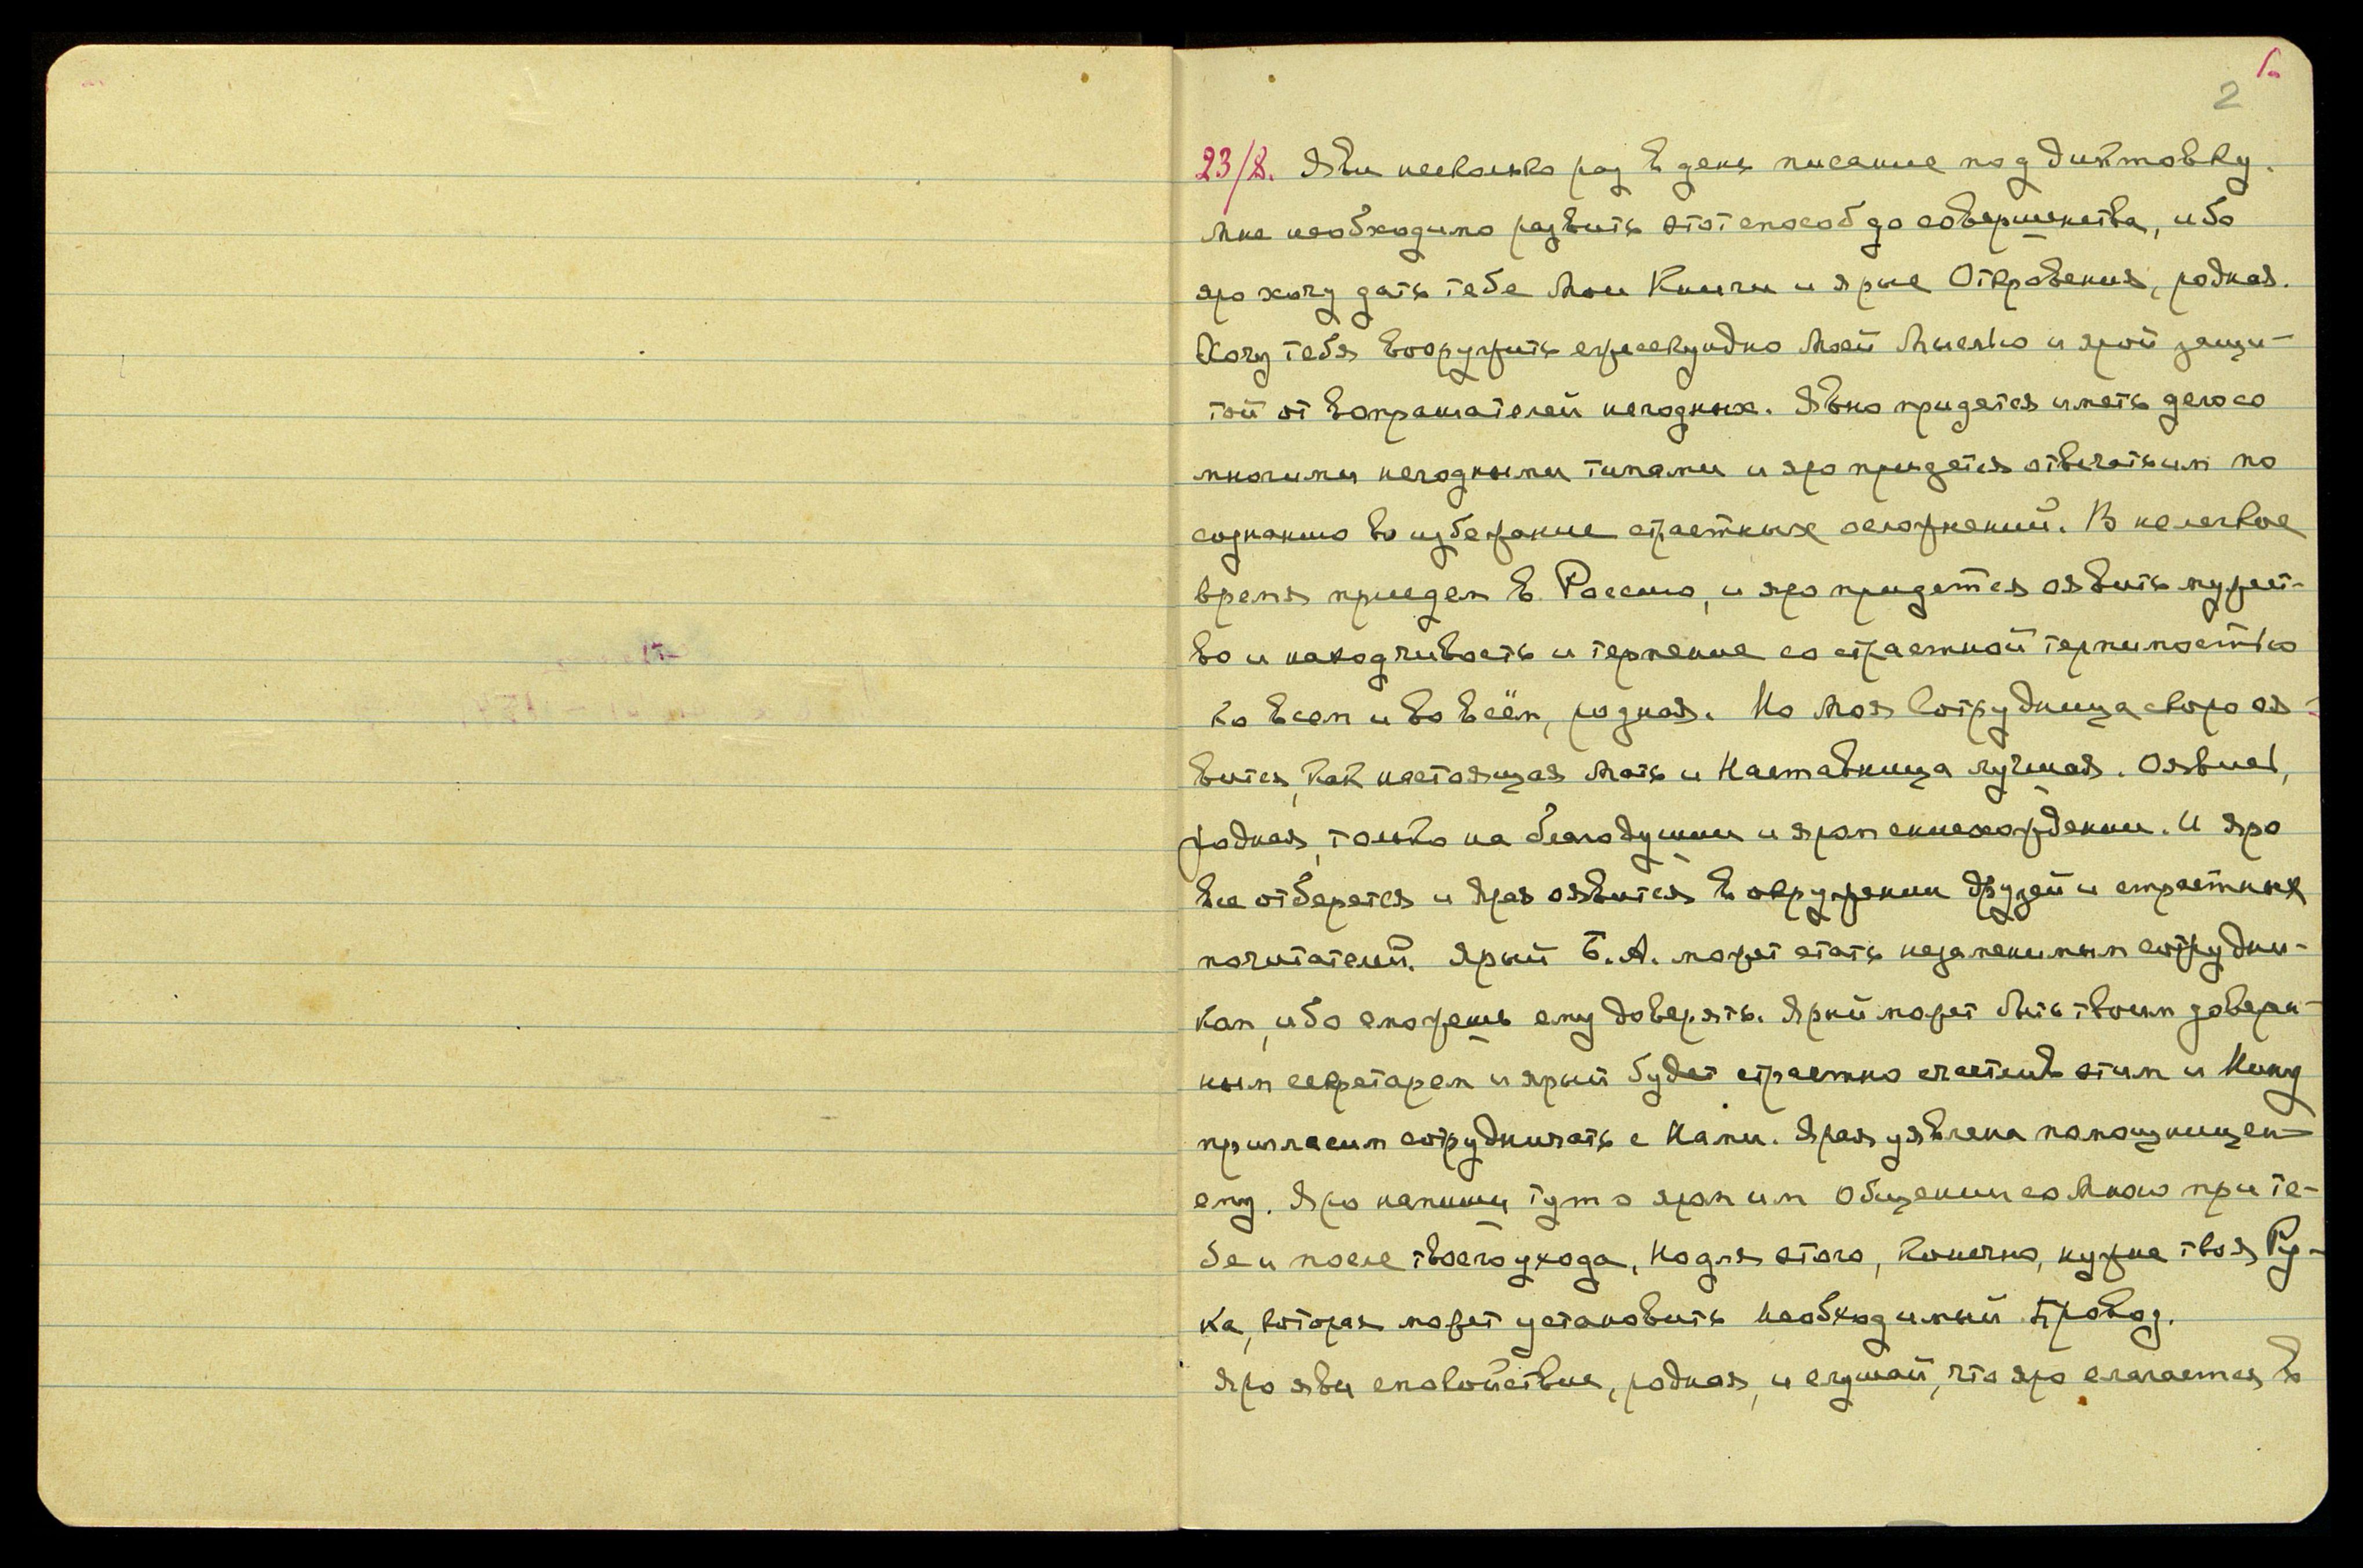 1.
2
23/8. Яви несколько раз в день писание под диктовку.
Мне необходимо развить этот способ до совершенства, ибо
яро хочу дать тебе Мои Книги и ярые Откровения, родная.
Хочу тебя вооружить ежесекундно Моей Мыслью и ярой защи-
той от вопрошателей негодных. Явно придется иметь дело со
многими негодными типами и яро придется отвечать им по
сознанию во избежание страстных осложнений. В нелегкое
время приедем в Россию, и яро придется оявить мужест-
во и находчивость и терпение со страстной терпимостью
ко всем и во всём, родная. Но Моя Сотрудница скоро оя-
вится, как настоящая Мать и Наставница лучшая. Оявись,
родная, только на благодушии и яром снисхождении. И яро
все отберется и Ярая оявится в окружении друзей и страстных
почитателей. Ярый Б.А. может стать незаменимым сотрудни-
ком, ибо сможешь ему доверять. Ярый может быть твоим доверен-
ным секретарем и ярый будет страстно счастлив этим и Нину
пригласим сотрудничать с Нами. Ярая уявлена помощницей
ему. Яро напиши тут о яром им Общении со Мною при те-
бе и после твоего ухода, но для этого, конечно, нужна твоя Ру-
ка, которая может установить необходимый провод.
Яро яви спокойствие, родная, и слушай, что яро слагается в